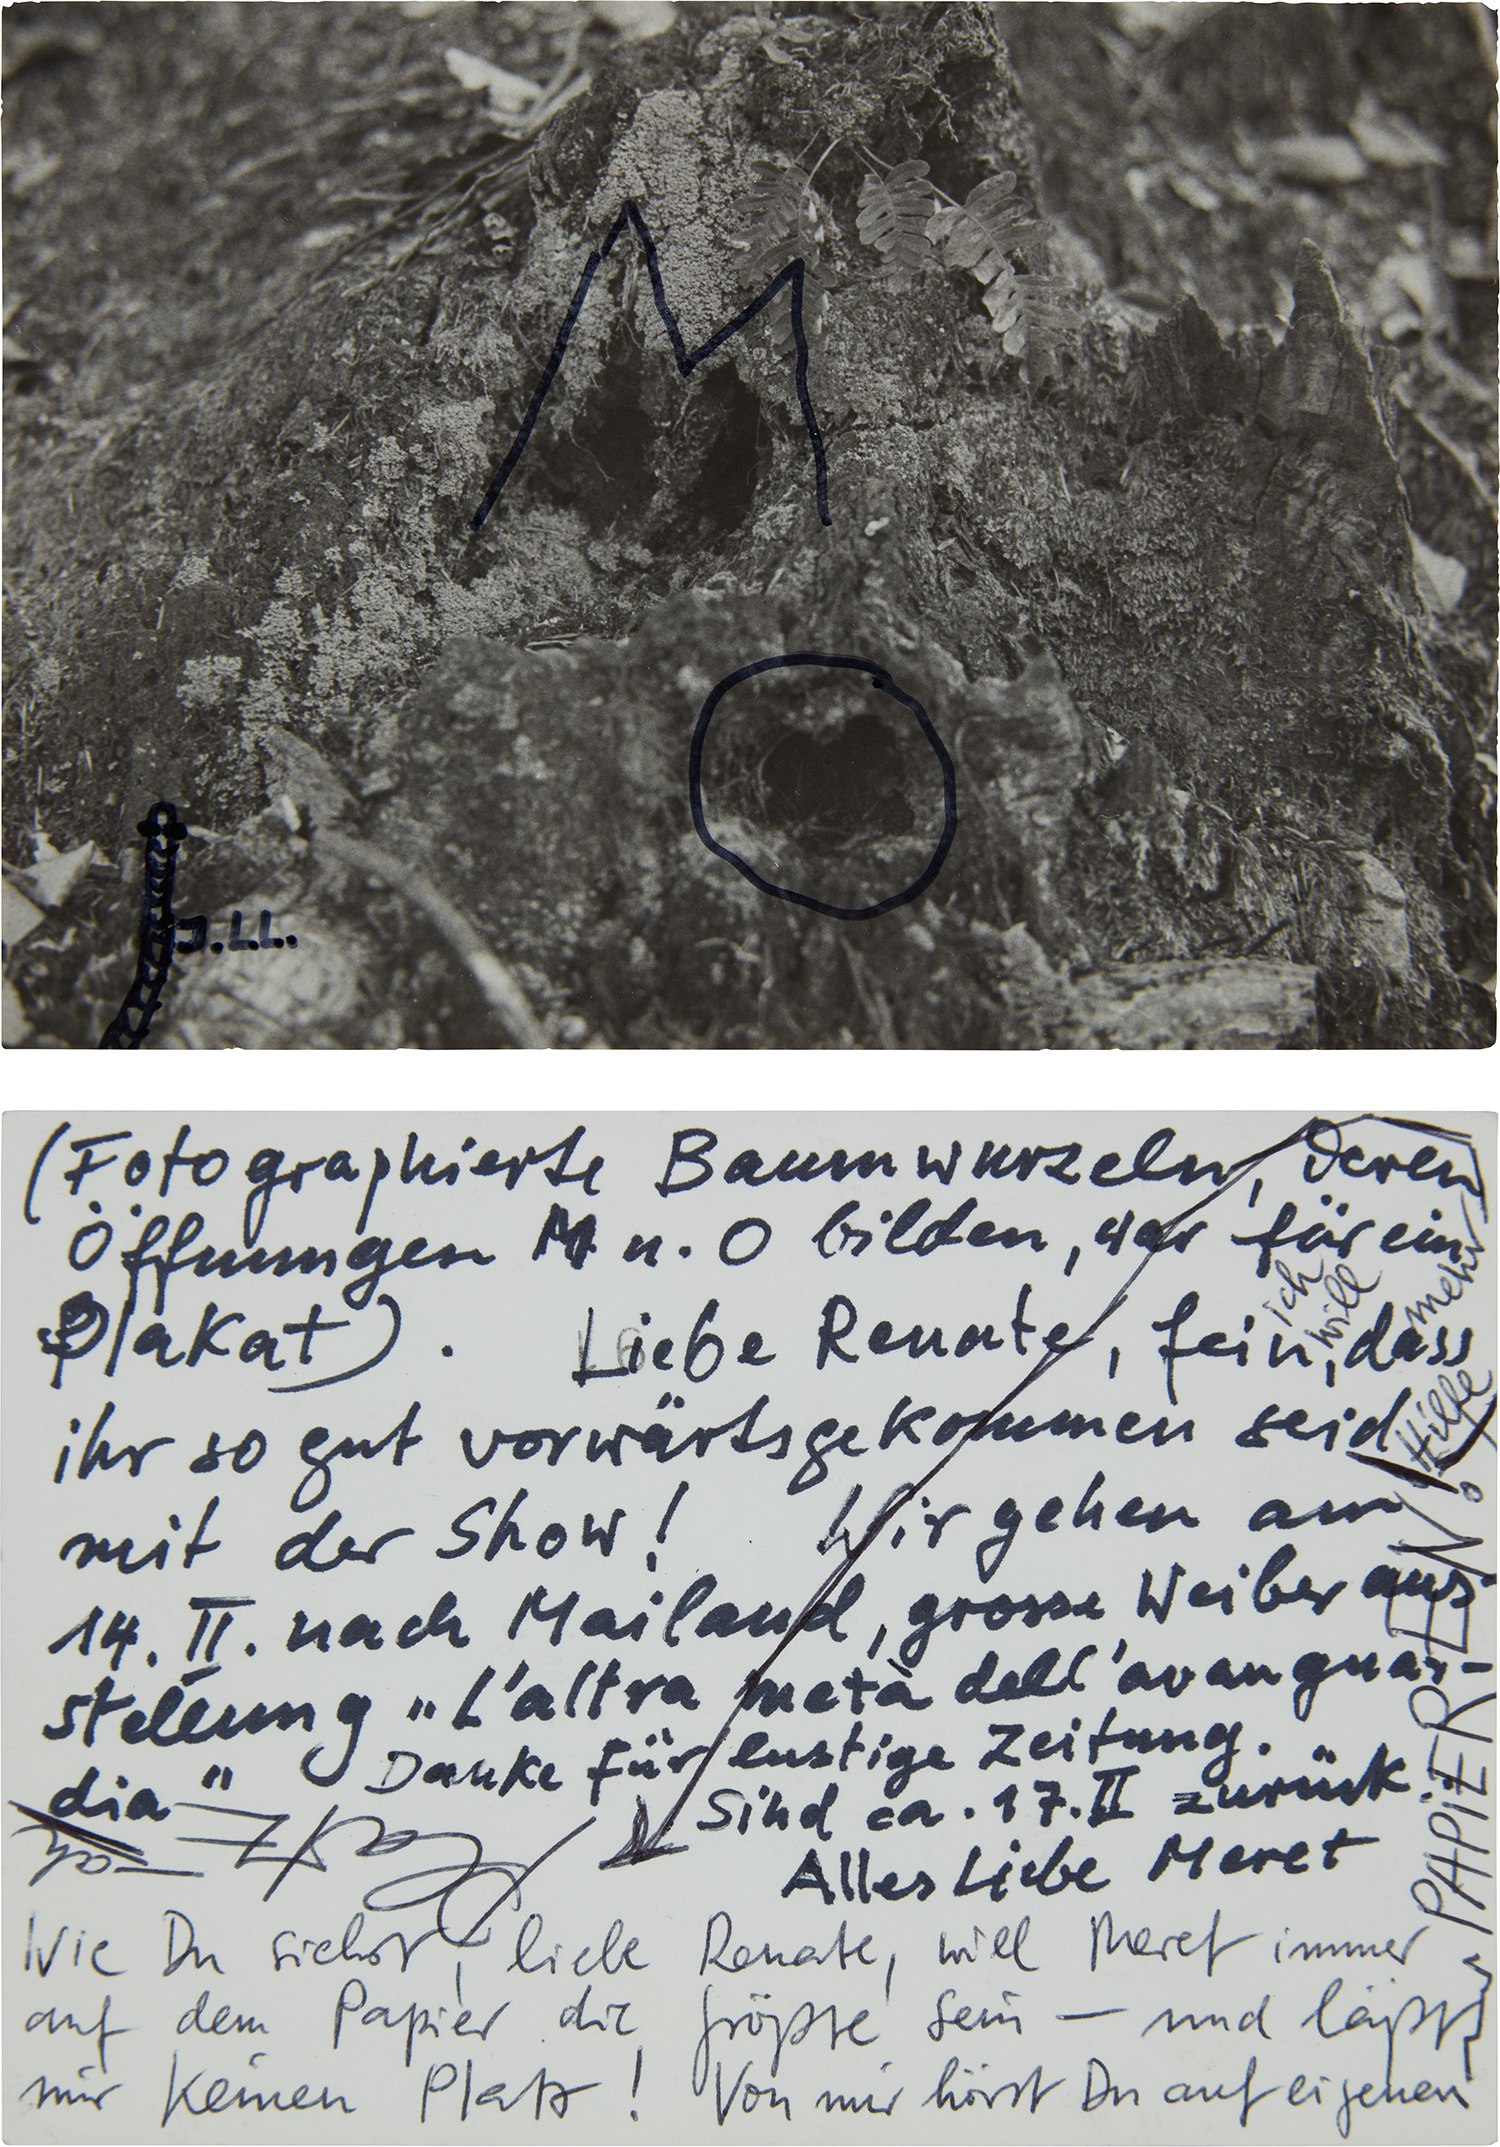 M
O
J.LL.
(Fotographierte Baumwurzeln, deren
Öffnungen M u. O bilden, war für ein
Plakat). Liebe Renate, fein, dass
ihr so gut vorwärtsgekommen seid
mit der Show! Wir gehen am
14. II. nach Mailand, grosse Weiber aus-
stellung „L'altra metà dell'avanguar-
dia" Danke für lustige Zeitung.
Sind ca. 17. II zurück.
Alles Liebe Meret
Wie Du siehst, liebe Renate, will Meret immer
auf dem Papier die größte sein — und läßt
mir keinen Platz! Von mir hörst Du auf eigenen
PAPIEREN!
ich
will
mehr
Hilfe